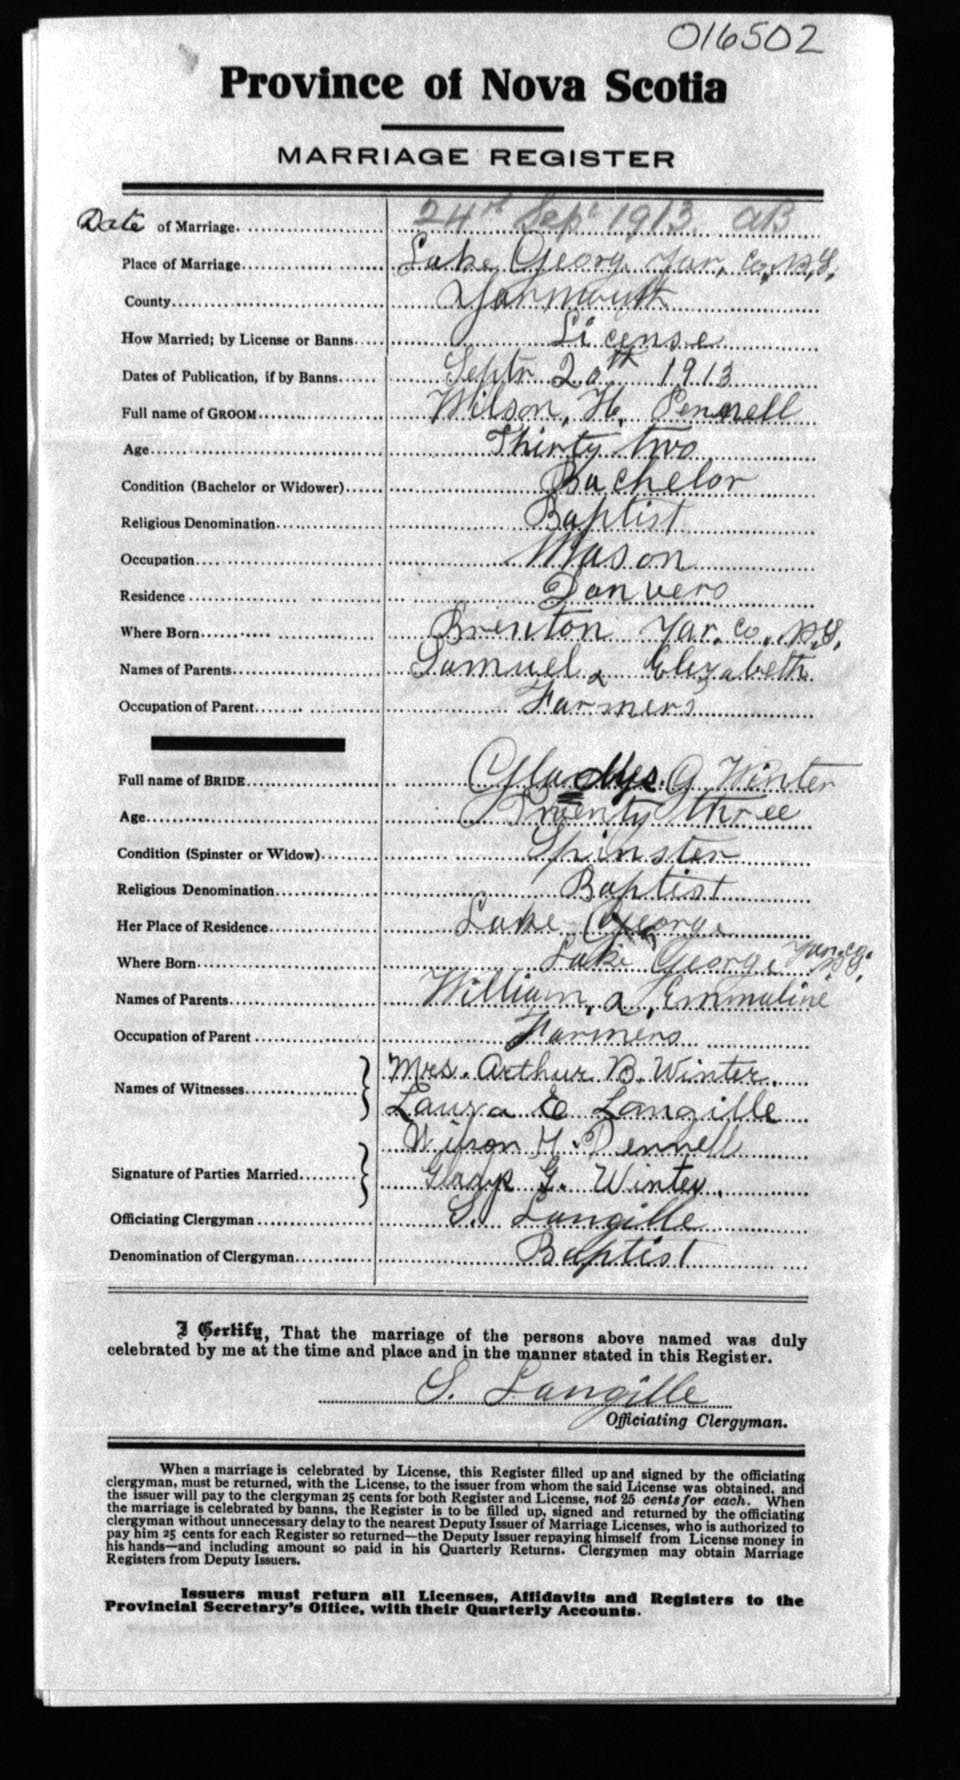 016502
Province of Nova Scotia
MARRIAGE REGISTER
Date of Marriage 24th Sept 1913. AB
Place of Marriage Lake Georg Yar, Co, N,S,
County Yarmouth
How Married; by License or Banns License
Dates of Publication, if by Banns Septr 20th 1913
Full name of GROOM Wilson, H, Pennell
Age Thirty two
Condition (Bachelor or Widower) Bachelor
Religious Denomination Baptist
Occupation Mason
Residence Danvers
Where Born Brenton Yar. Co. N,S,
Names of Parents Samuel & Elizabeth
Occupation of Parent Farmers
Full name of BRIDE Gladys. G Winter
Age Twenty three
Condition (Spinster or Widow) Spinster
Religious Denomination Baptist
Her Place of Residence Lake George
Where Born Lake George Yar. Co. N,S,
Names of Parents William, & Emmaline
Occupation of Parent Farmers
Names of Witnesses Mrs. Arthur B. Winter.
Laura E Langille
Wilson H. Pennell
Signature of Parties Married Gladys G. Winter.
Officiating Clergyman S. Langille
Denomination of Clergyman Baptist
I Certify, That the marriage of the persons above named was duly
celebrated by me at the time and place and in the manner stated in this Register.
S. Langille
Officiating Clergyman.
When a marriage is celebrated by License, this Register filled up and signed by the officiating
clergyman, must be returned, with the License, to the issuer from whom the said License was obtained, and
the issuer will pay to the clergyman 25 cents for both Register and License, not 25 cents for each. When
the marriage is celebrated by banns, the Register is to be filled up, signed and returned by the officiating
clergyman without unnecessary delay to the nearest Deputy Issuer of Marriage Licenses, who is authorized to
pay him 25 cents for each Register so returned—the Deputy Issuer repaying himself from License money in
his hands—and including amount so paid in his Quarterly Returns. Clergymen may obtain Marriage
Registers from Deputy Issuers.
Issuers must return all Licenses, Affidavits and Registers to the
Provincial Secretary's Office, with their Quarterly Accounts.